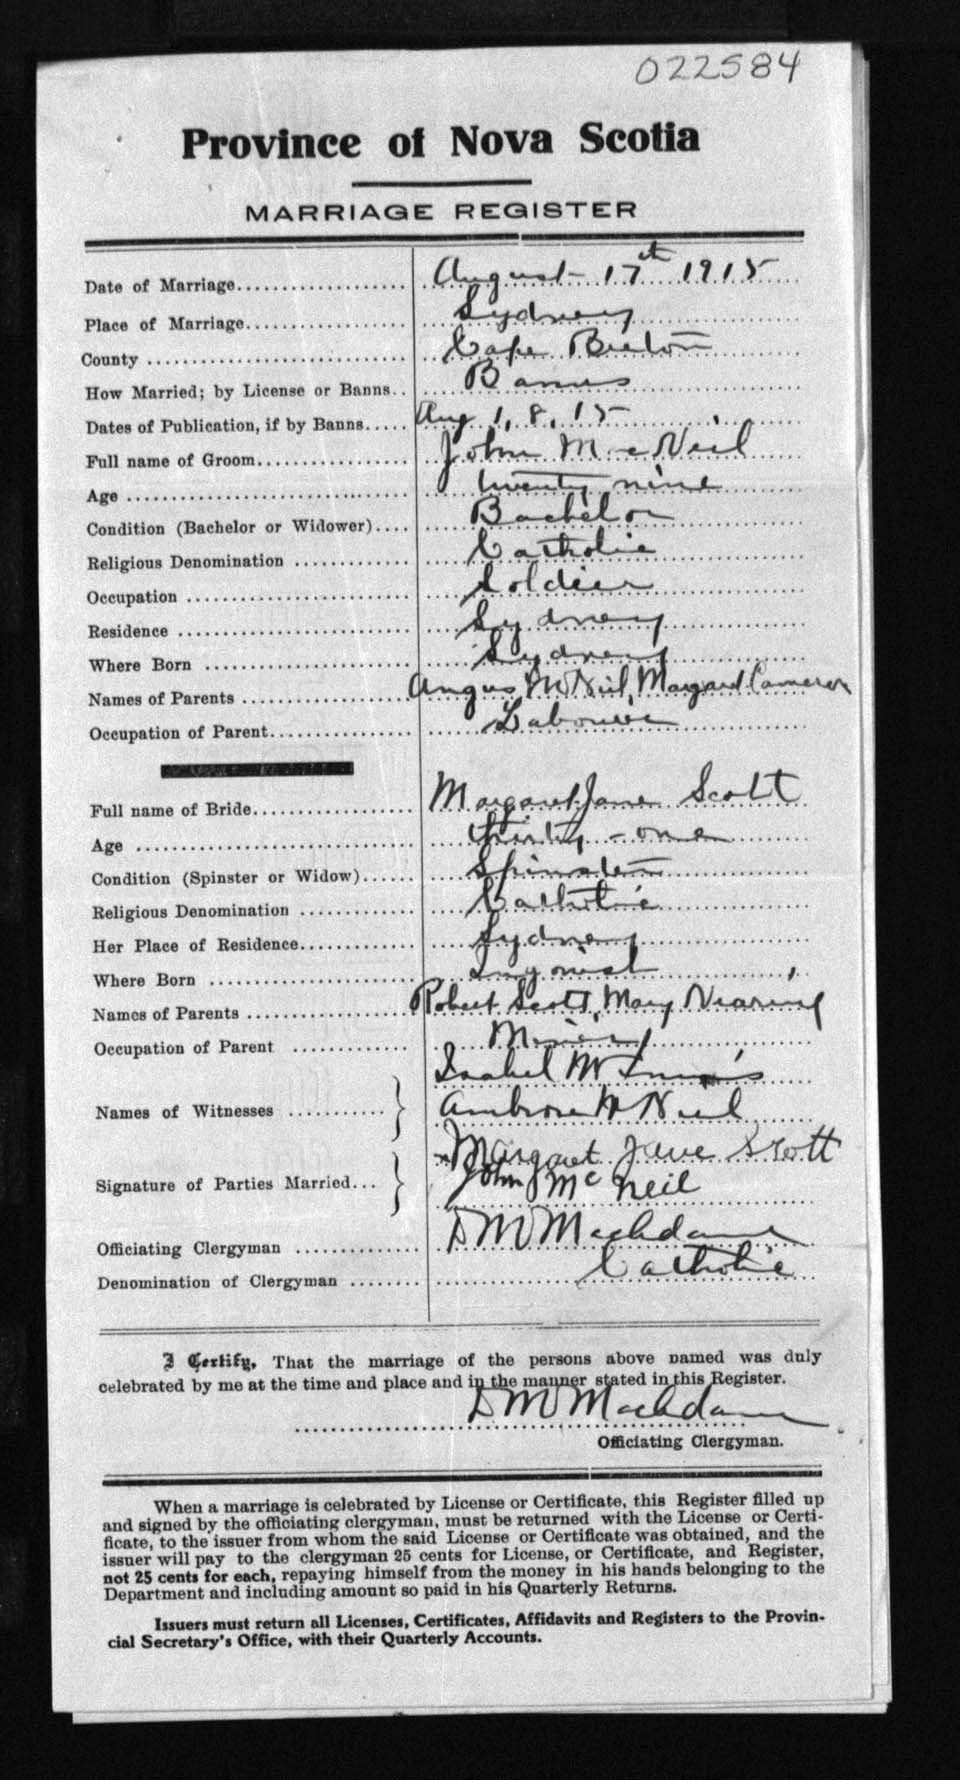 022584
Province of Nova Scotia
MARRIAGE REGISTER
Date of Marriage................... August 17th 1915
Place of Marriage.................. Sydney
County ............................ Cape Breton
How Married; by License or Banns.. Banns
Dates of Publication, if by Banns..... Aug 1, 8, 15
Full name of Groom................. John MacNeil
Age ............................... twenty nine
Condition (Bachelor or Widower).... Bachelor
Religious Denomination ............. Catholic
Occupation ......................... Soldier
Residence .......................... Sydney
Where Born ........................ Sydney
Names of Parents .................. Angus McNeil, Margaret Cameron
Occupation of Parent................ Labourer
Full name of Bride.................. Margaret Jane Scott
Age ............................... thirty-one
Condition (Spinster or Widow)...... Spinster
Religious Denomination ............. Catholic
Her Place of Residence............. Sydney
Where Born ........................ Ingonish
Names of Parents .................. Robert Scott, Mary Nearing
Occupation of Parent ..............
Isabel McInnis
Names of Witnesses ........... } Ambrose McNeil
Margaret Jane Scott
Signature of Parties Married... } John J McNeil
Officiating Clergyman .............. D M MacAdam
Denomination of Clergyman ........ Catholic
I Certify, That the marriage of the persons above named was duly
celebrated by me at the time and place and in the manner stated in this Register.
D M MacAdam
Officiating Clergyman.
When a marriage is celebrated by License or Certificate, this Register filled up
and signed by the officiating clergyman, must be returned with the License or Certi-
ficate, to the issuer from whom the said License or Certificate was obtained, and the
issuer will pay to the clergyman 25 cents for License, or Certificate, and Register,
not 25 cents for each, repaying himself from the money in his hands belonging to the
Department and including amount so paid in his Quarterly Returns.
Issuers must return all Licenses, Certificates, Affidavits and Registers to the Provin-
cial Secretary's Office, with their Quarterly Accounts.